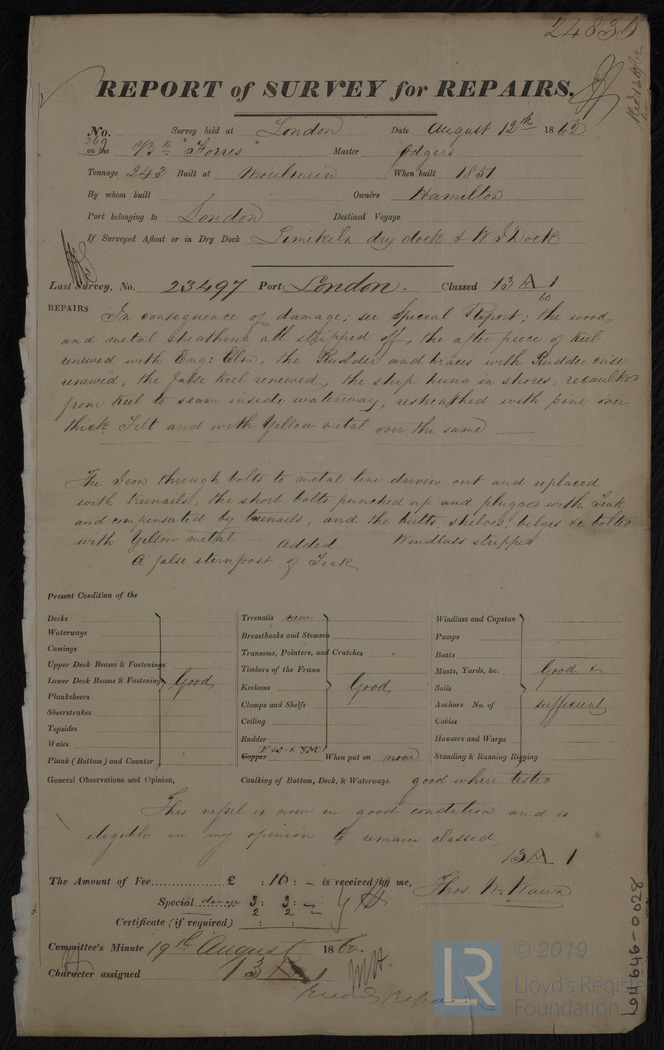 24836
REPORT of SURVEY for REPAIRS.
No. 369 Survey held at London Date August 12th 1862
on the Bk "Forres" Master Adgers
Tonnage 243 Built at Moulmein When built 1851
By whom built Owners Hamilton
Port belonging to London Destined Voyage
If Surveyed Afloat or in Dry Dock Limekiln dry dock & W I Dock
Last Survey, No. 23497 Port London. Classed 13 A 1
60
REPAIRS In consequence of damage; see Special Report; the wood
and metal sheathing all stripped off, the after piece of keel
renewed with Eng: Elm. the Rudder and braces with Rudder case
renewed, the false keel renewed, the ship hung in shores, recaulked
from keel to seam inside waterway, resheathed with pine over
thick Felt and with Yellow metal over the same
The Iron through bolts to metal line driven out and replaced
with treenails, the short bolts punched up and plugged with Teak
and compensated by treenails, and the butts, shelves, bilges &c bolted
with Yellow metal — added Windlass stripped
A false sternpost of Teak
Present Condition of the
Decks
Waterways
Comings
Upper Deck Beams & Fastenings
Lower Deck Beams & Fastenings
Planksheers
Sheerstrakes
Topsides
Wales
Plank (Bottom) and Counter
Good
Treenails new
Breasthooks and Stemson
Transoms, Pointers, and Crutches
Timbers of the Frame
Keelsons
Clamps and Shelfs
Ceiling
Rudder
Copper When put on now
Good
Windlass and Capstan
Pumps
Boats
Masts, Yards, &c.
Sails
Anchors No. of
Cables
Hawsers and Warps
Standing & Running Rigging
Good &
sufficient
General Observations and Opinion, Caulking of Bottom, Deck, & Waterways good where tested
This vessel is now in good condition and is
eligible in my opinion to remain classed
13 A 1
The Amount of Fee............... £ : 10 : — is received by me, Thos W. Wawn
Special damage 3 : 3 : —
2 2
Certificate (if required) : :
Committee's Minute 19th August 1862
Character assigned 13 A 1
LR
© 2019
Lloyd's Register
Foundation
LON 646-0028